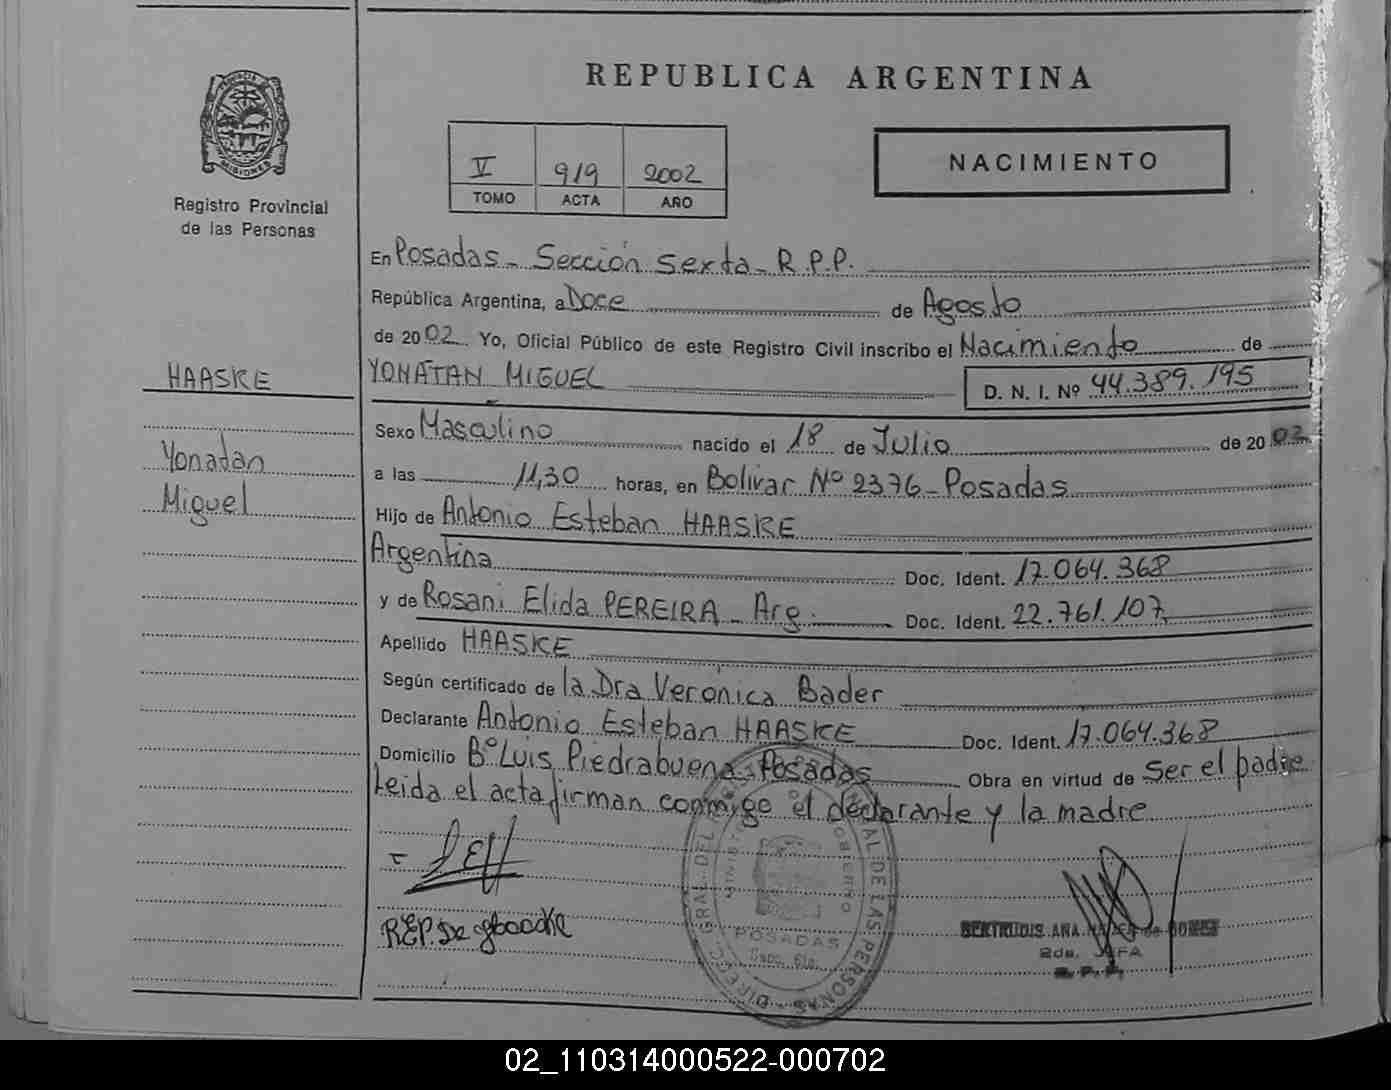 REPUBLICA ARGENTINA
PROVINCIA DE MISIONES
Registro Provincial
de las Personas
V 919 2002
TOMO ACTA AÑO
NACIMIENTO
En Posadas - Sección Sexta - R.P.P.
República Argentina, a Doce de Agosto
de 2002 Yo, Oficial Público de este Registro Civil inscribo el Nacimiento de
HAASKE
YONATAN MIGUEL D. N. I. Nº 44.389.195
Sexo Masculino nacido el 18 de Julio de 2002
Yonatan
Miguel
a las 11,30 horas, en Bolivar Nº 2376 - Posadas
Hijo de Antonio Esteban HAASKE
Argentina Doc. Ident. 17.064.368
y de Rosani Elida PEREIRA - Arg. Doc. Ident. 22.761.107
Apellido HAASKE
Según certificado de la Dra Verónica Bader
Declarante Antonio Esteban HAASKE Doc. Ident. 17.064.368
Domicilio Bº Luis Piedrabuena - Posadas Obra en virtud de ser el padre
Leida el acta firman conmigo el declarante y la madre
DIRECC. GRAL. DEL AL DE LAS PERSONAS
POSADAS
BERTRUDIS ANA de
2da. JEFA
R. P. P.
02_110314000522-000702